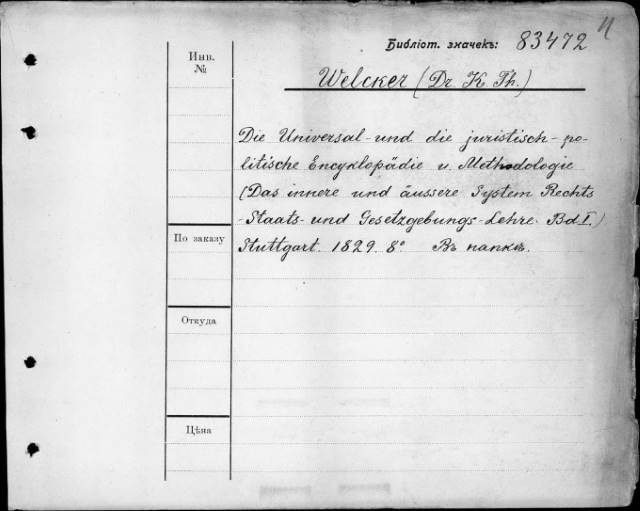 Библіот. значекъ: 83472
Инв.
№
Welcker (Dr. K. Th.)
Die Universal- und die juristisch-po-
litische Encyklopädie u. Methodologie
(Das innere und äussere System Rechts
-Staats- und Gesetzgebungs-Lehre. Bd. I.)
По заказу
Stuttgart. 1829. 8° Въ папкѣ.
Откуда
Цѣна